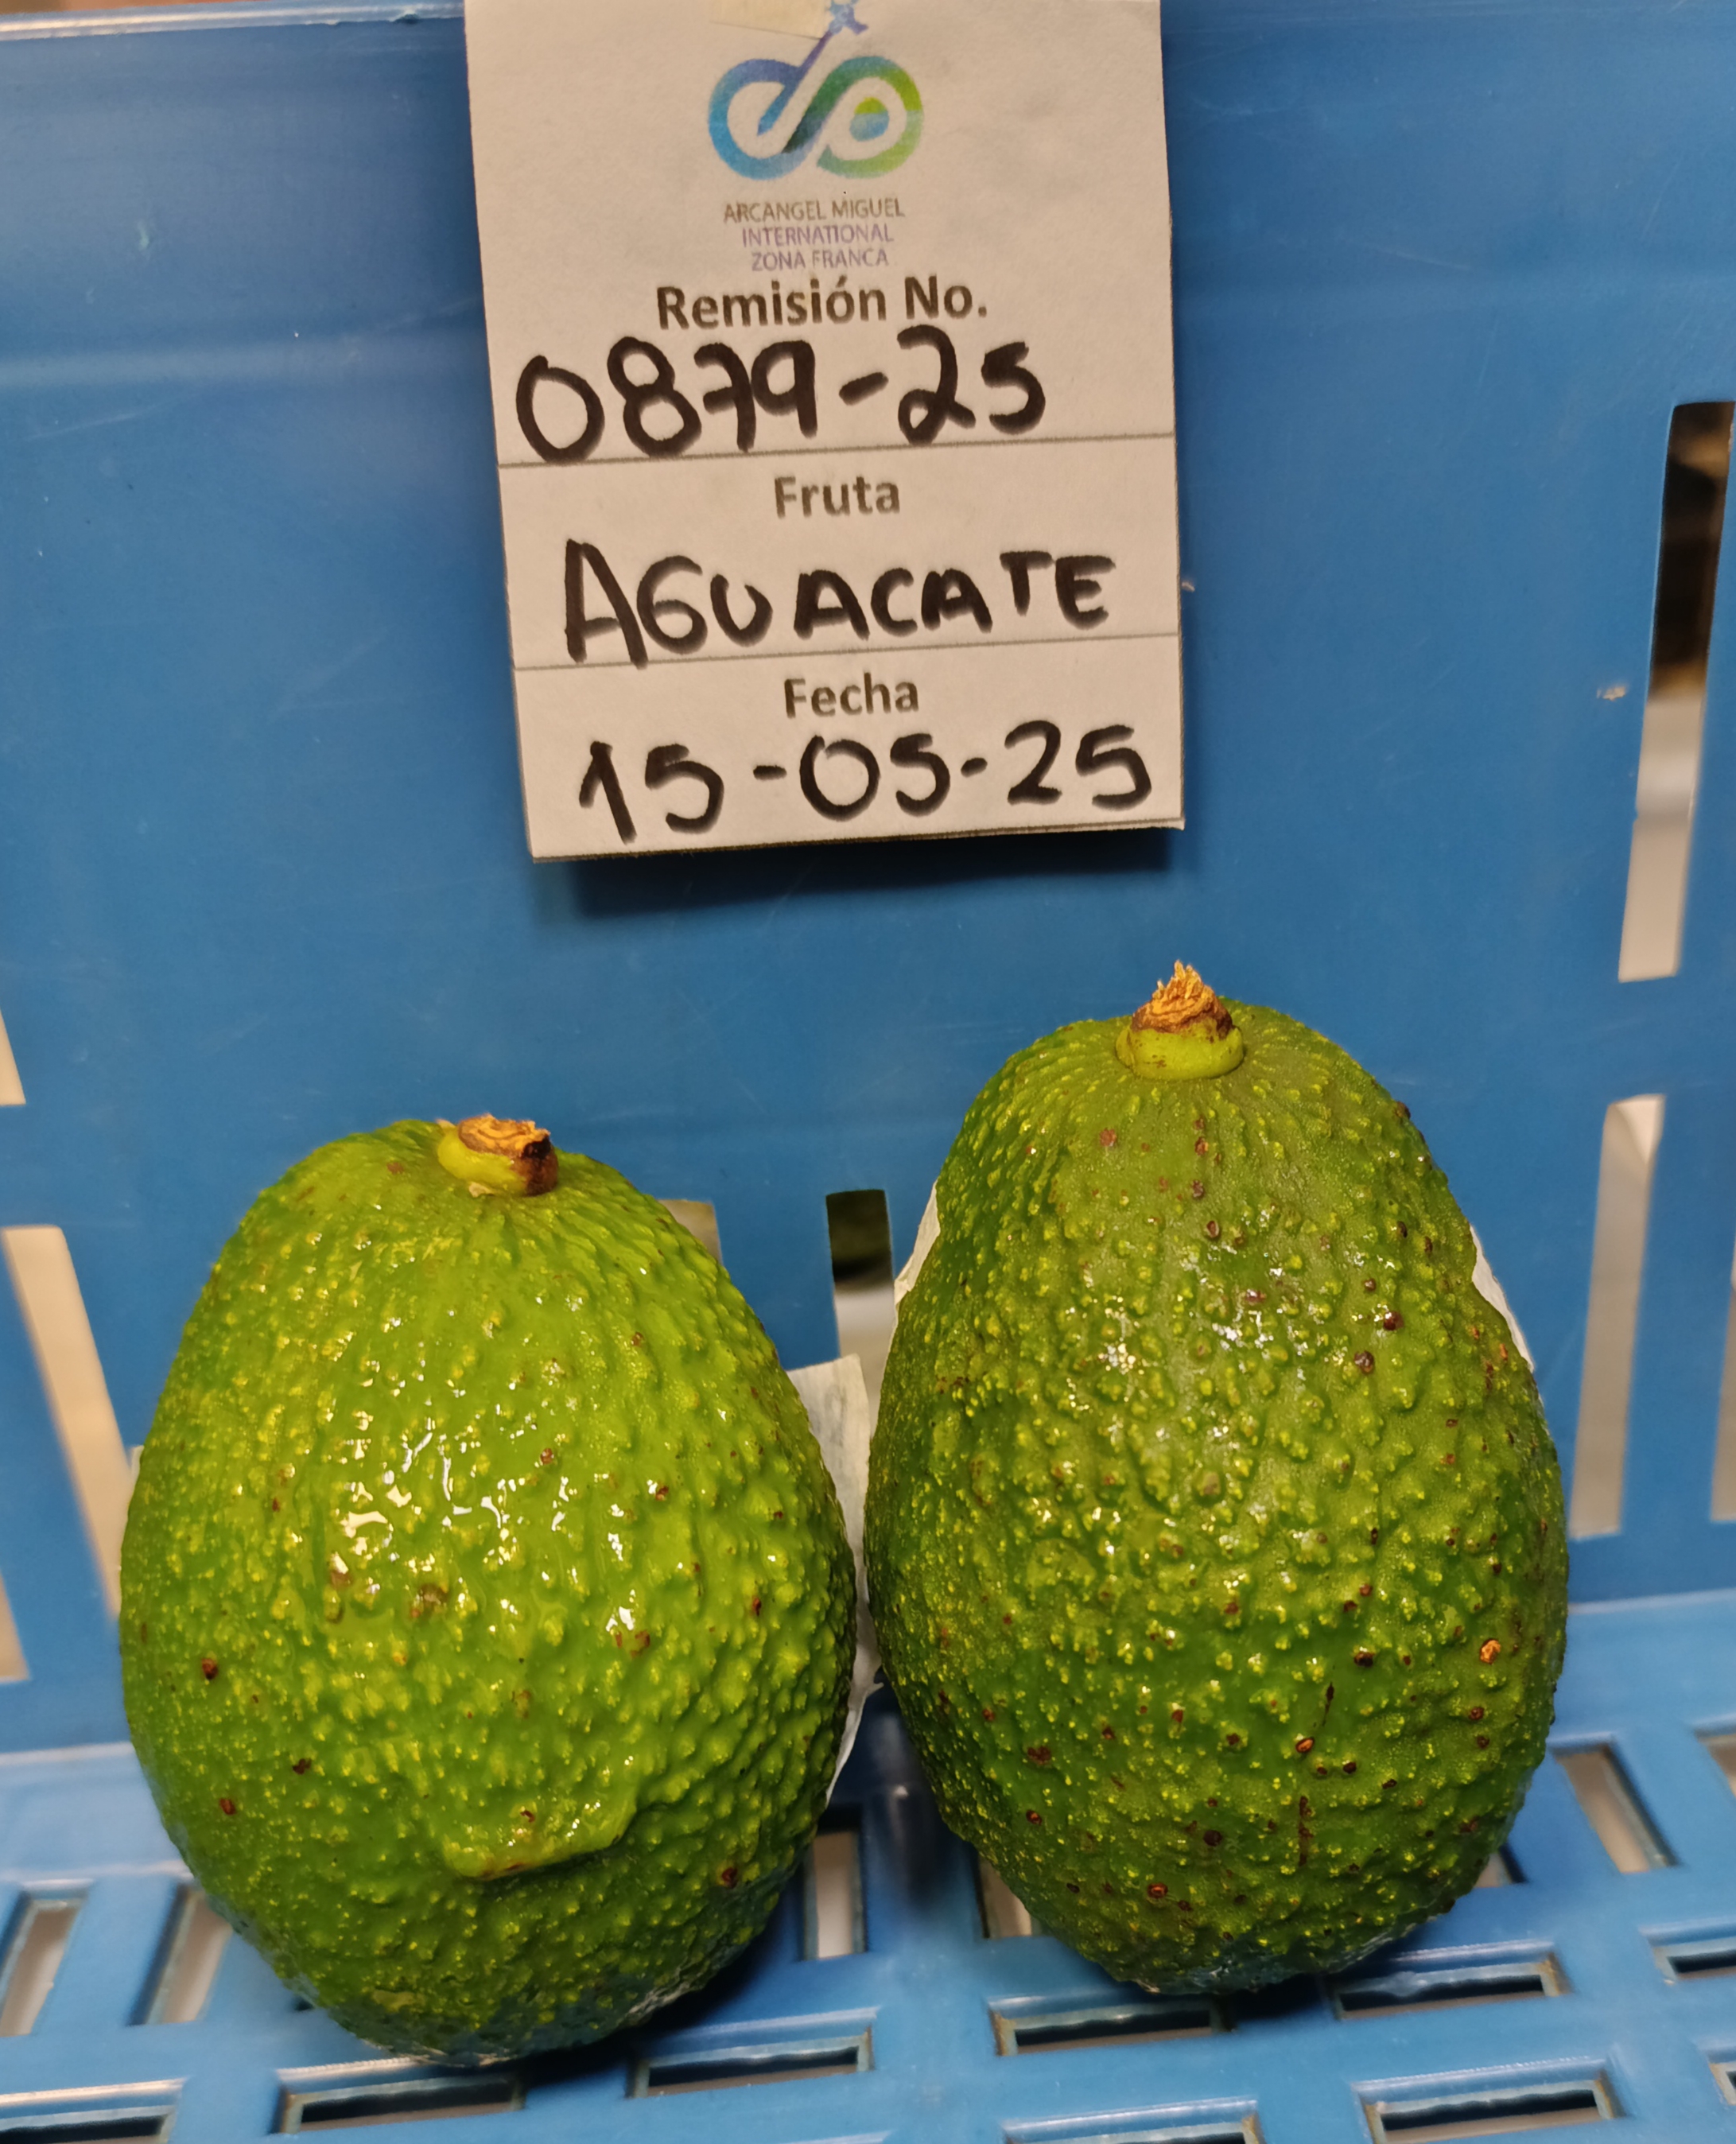 ARCANGEL MIGUEL
INTERNATIONAL
ZONA FRANCA
Remisión No.
0879-25
Fruta
AGUACATE
Fecha
15-05-25